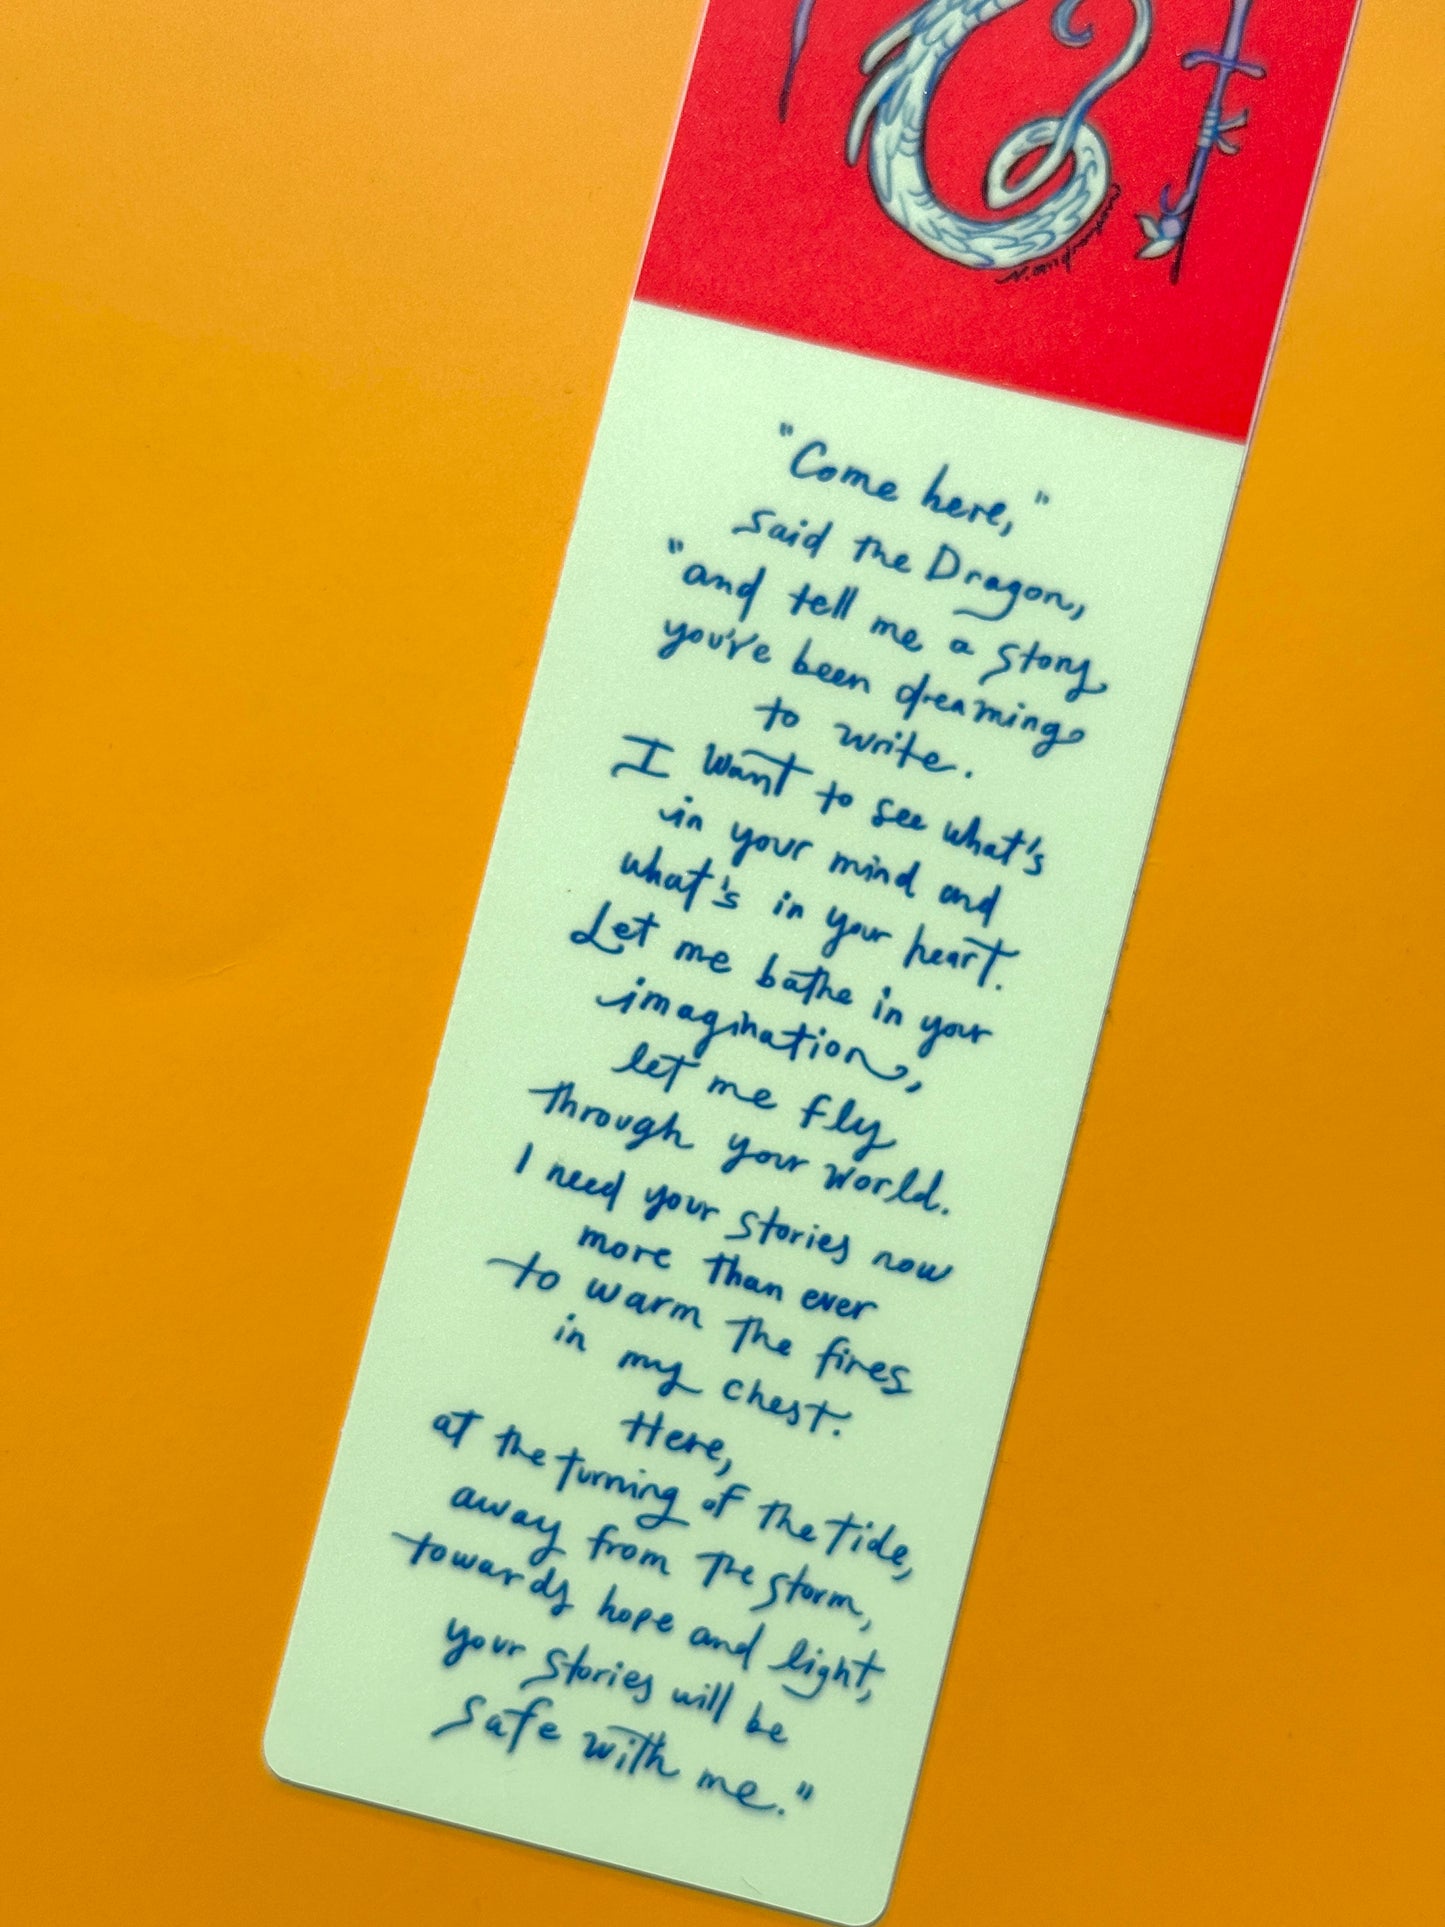 "Come here,"
said the Dragon,
"and tell me a story
you've been dreaming
to write.
I want to see what's
in your mind and
what's in your heart.
Let me bathe in your
imagination,
let me fly
through your world.
I need your stories now
more than ever
to warm the fires
in my chest.
Here,
at the turning of the tide,
away from the storm,
towards hope and light,
your stories will be
safe with me."